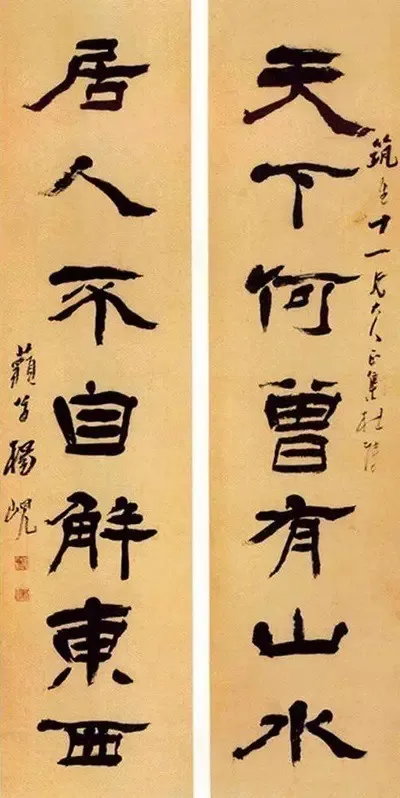 天下何曾有山水
十一兄大人正
居人不自解東西
藐翁楊峴